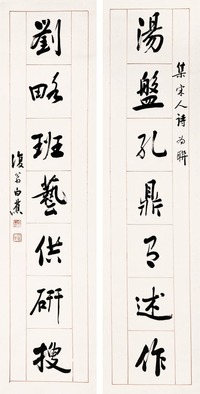 湯盤孔鼎有述作
集宋人詩為聯
劉略班藝供研搜
復翁白蕉